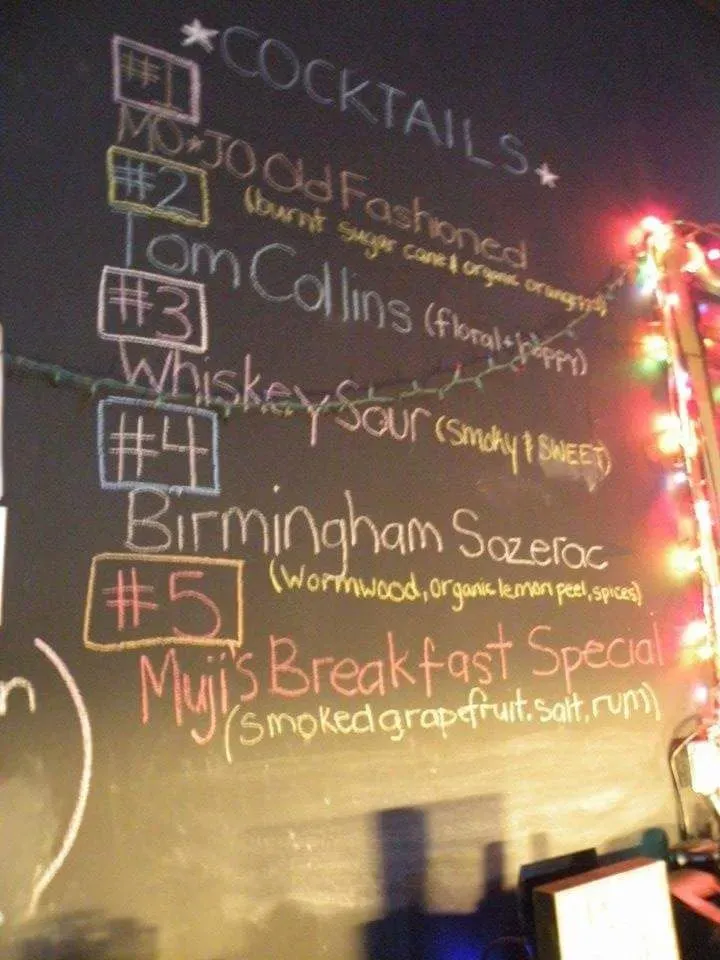 *COCKTAILS*
#1
MO*JO Old Fashioned
(burnt sugar cane & organic orange
#2
Tom Collins (floral + hoppy)
#3
Whiskey Sour (smoky & SWEET)
#4
Birmingham Sazerac
(wormwood, organic lemon peel, spices)
#5
Muji's Breakfast Special
(smoked grapefruit. salt, rum)
n)